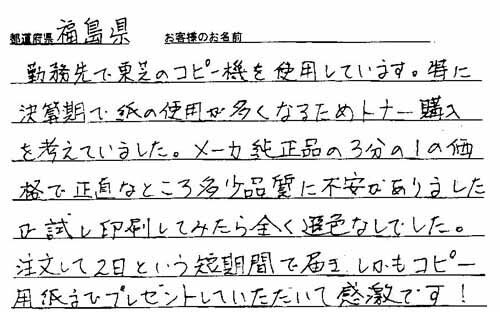 都道府県 福島県 お客様のお名前
勤務先で東芝のコピー機を使用しています。特に
決算期で紙の使用が多くなるためトナー購入
を考えていました。メーカ純正品の3分の1の価
格で正直なところ多少品質に不安がありました
が試し印刷してみたら全く遜色なしでした。
注文して2日という短期間で届きしかもコピー
用紙までプレゼントしていただいて感激です!